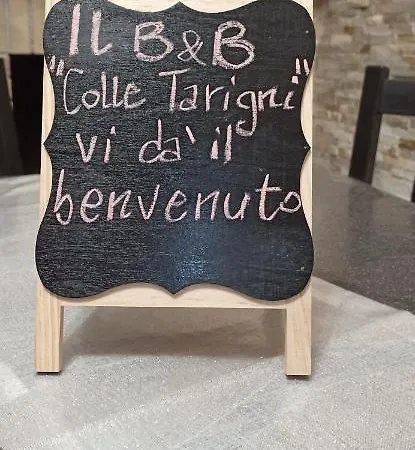 Il B&B
"Colle Tarigni"
vi da' il
benvenuto